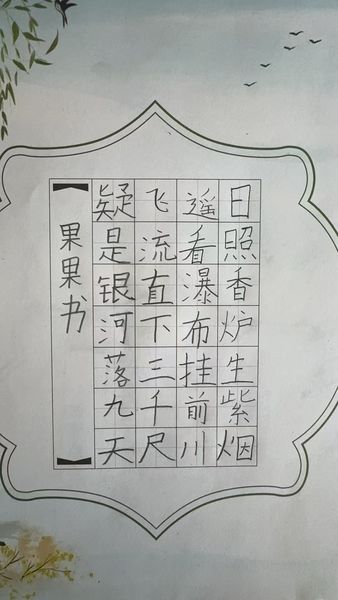 日照香炉生紫烟
遥看瀑布挂前川
飞流直下三千尺
疑是银河落九天
果果书